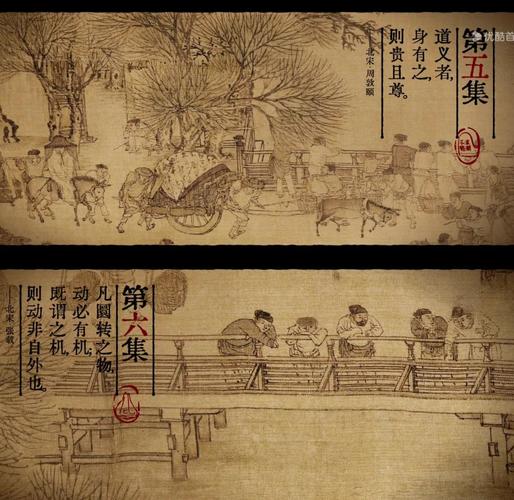 优酷首
第五集
道义者，
身有之，
则贵且尊。
北宋·周敦颐
第六集
凡圜转之物，
动必有机，
既谓之机，
则动非自外也。
北宋 张载